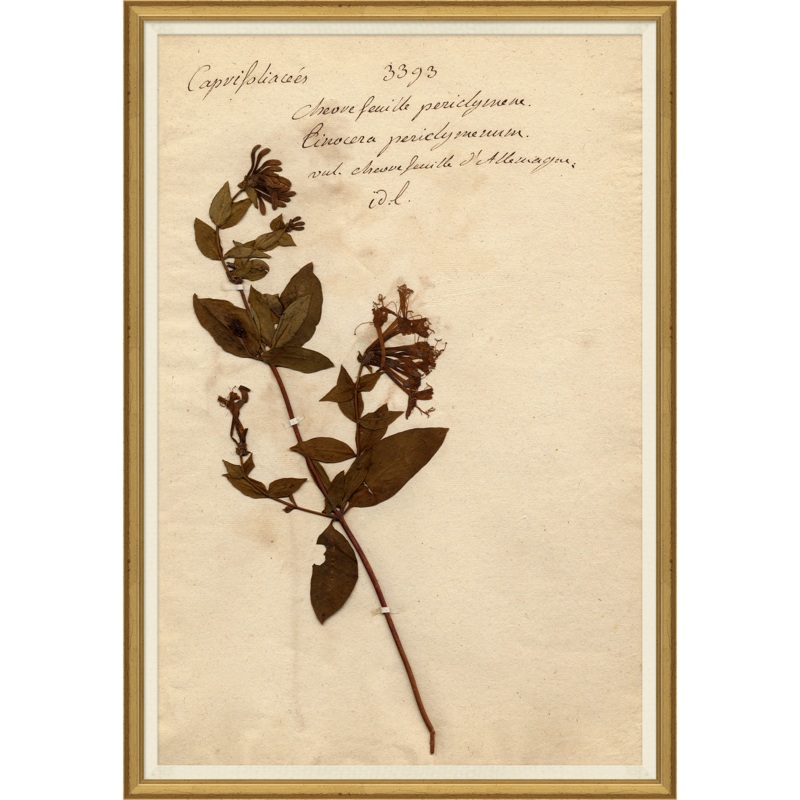 Caprifoliacées 3393
chevrefeuille periclymene.
Linocera periclymenum.
vul. chevrefeuille d'Allemagne.
id.l.